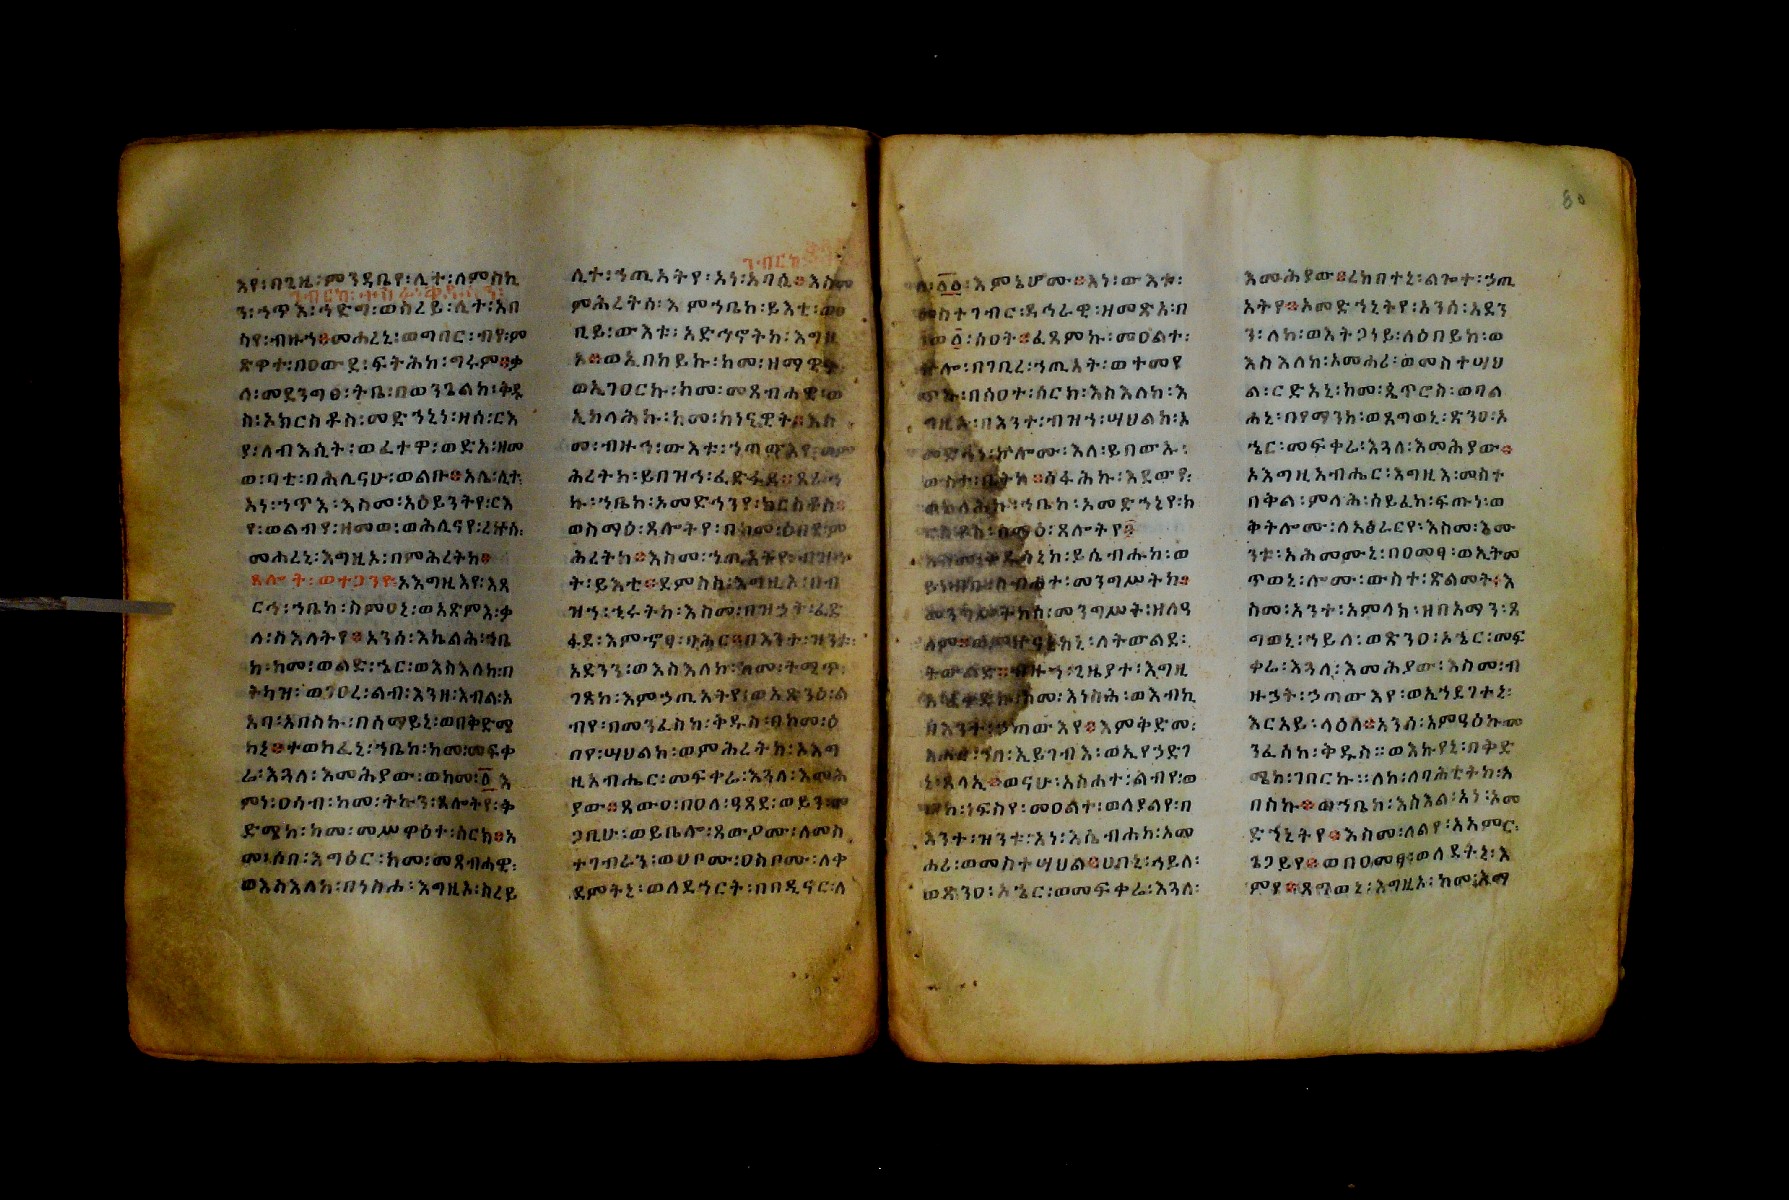 እየ፡በጊዜ፡ምንዳቤየ፡ሊተ፡ለምስኪ
ን፡ኃጥእ፡ኅድግ፡ወስረይ፡ሊተ፡አበ
ሳየ፡ብዙኅ፨መሐረኒ፡ወግበር፡ብየ፡ም
ጽዋተ፡በዐውደ፡ፍትሕከ፡ግሩም፨ቃ
ለ፡መደንግፅ፡ትቤ፡በወንጌልከ፡ቅዱ
ስ፡ኦክርስቶስ፡መድኀኒነ፡ዘሰ፡ርእ
ያ፡ለብእሲት፡ወፈተዋ፡ወድአ፡ዘመ
ወ፡ባቲ፡በሕሊናሁ፡ወልቡ፨አሌ፡ሊተ፡
አነ፡ኃጥእ፡እስመ፡አዕይንትየ፡ርእ
የ፡ወልብየ፡ዘመወ፡ወሕሊናየ፡ረኵሰ፡
መሐረኒ፡እግዚኦ፡በምሕረትከ፨
ጸሎት፡ወተጋንዮ፡አእግዚእየ፡እጸ
ርኅ፡ኀቤከ፡ስምዐኒ፡ወአጽምእ፡ቃ
ለ፡ስእለትየ፨አንሰ፡እኬልሕ፡ኀቤ
ከ፡ከመ፡ወልድ፡ኄር፡ወእስእለከ፡በ
ትካዝ፡ወንዐረ፡ልብ፡እንዘ፡እብል፡አ
አባ፡አበስኩ፡በሰማይኒ፡ወበቅድሜ
ከኒ፨ተወከፈኒ፡ኀቤከ፡ከመ፡መፍቀ
ሬ፡እጓለ፡እመሕያው፡ወከመ፡፩እ
ምነ፡ዐሳብ፡ከመ፡ትኩን፡ጸሎትየ፡ቅ
ድሜከ፡ከመ፡መሥዋዕተ፡ሰርክ፨አ
መ፡ሰበ፡እግዕር፡ከመ፡መጸብሐዊ፡
ወእስእለከ፡በንስሐ፡እግዚኦ፡ስረይ
ሊተ፡ኃጢአትየ፡አነ፡አባሲ፨እስመ
ምሕረትሰ፡እምኀቤከ፡ይእቲ፡ወዐ
ቢይ፡ውእቱ፡አድኅኖትከ፡እግዚ
ኦ፨ወኢበከይኩ፡ከመ፡ዘማዊት፡
ወኢገዐርኩ፡ከመ፡መጸብሐዊ፡ወ
ኢከላሕኩ፡ከመ፡ከነናዊት፨እስ
መ፡ብዙኅ፡ውእቱ፡ኃጣውእየ፡
ሕረትከ፡ይበዝኅ፡ፈድፋደ፨
ኩ፡ኀቤከ፡አመድኀንየ፡ክርስቶስ፡
ወስማዕ፡ጸሎትየ፡በከመ፡ዕበየ፡ም
ሕረትከ፨እስመ፡ኃጢአትየ፡ብዝኅ
ት፡ይእቲ፨ደምስስ፡እግዚኦ፡በብ
ዝኅ፡ኂሩትከ፡እስመ፡በዝኃት፡ፈድ
ፋደ፡እምኖፃ፡ባሕር፨በእንተ፡ዝንቱ፡
አደንን፡ወእስእለከ፡ከመ፡ትሚጥ፡
ገጸከ፡እምኃጢአትየ፡ወአጽንዕ፡ል
ብየ፡በመንፈስከ፡ቅዱስ፡በከመ፡ዕ
በየ፡ሣህልከ፡ወምሕረትከ፡ኦእግ
ዚአብሔር፡መፍቀሬ፡እጓለ፡እመሕ
ያው፨ጸውዐ፡በዐለ፡ዓጸደ፡ወይን፡
ጋቢሁ፡ወይቤሎ፡ጸውዖሙ፡ለመስ
ተገብራን፡ወሀቦሙ፡ዐስቦሙ፡ለቀ
ደምትኒ፡ወለደኀርት፡በበዲናር፡ለ
እምኔሆሙ፨አነ፡ውእቱ፡
መስተገብር፡ደኀራዊ፡ዘመጽአ፡በ
ሰዐት፨ፈጸምኩ፡መዐልተ፡
በገቢረ፡ኃጢአት፡ወተመየ
ጥኩ፡በሰዐተ፡ሰርክ፡እስእለከ፡እ
ግዚኦ፡በእንተ፡ብዝኀ፡ሣህልከ፡አ
መድኀኔ፡ኵሎሙ፡እለ፡ይበውኡ፡
ውስተ፡ቤትከ፨ሰፋሕኩ፡እደውየ፡
ወከላሕኩ፡ኀቤከ፡አመድኀኒየ፡ክ
ርስቶስ፡ስማዕ፡ጸሎትየ፨
ይሴብሑከ፡ወ
ስብሐተ፡መንግሥትከ፨
መንግሥትከሰ፡መንግሥት፡ዘለዓ
ለም፨ወምኵናንከኒ፡ለትውልደ፡
ትውልድ፨ብዙኀ፡ጊዜያተ፡እግዚ
ኦ፡ፈቀድኩ፡ከመ፡እነስሕ፡ወእብኪ
በእንተ፡ኃጣውእየ፨እምቅድመ፡
ኀበ፡ኢይገብእ፡ወኢየኃድገ
ኒ፡ጸላኢ፨ወናሁ፡አስሐተ፡ልብየ፡ወ
ነፍስየ፡መዐልተ፡ወለያልየ፡በ
እንተ፡ዝንቱ፡አነ፡እሴብሐከ፡አመ
ሐሪ፡ወመስተሣህል፨ሀበኒ፡ኀይለ፡
ወጽንዐ፡ኦኄር፡ወመፍቀሬ፡እጓለ፡
እመሕያው፨ረከበተኒ፡ልጐተ፡ኃጢ
አትየ፨አመድኀኒትየ፡አንሰ፡አደን
ን፡ለከ፡ወእትጋነይ፡ለዕበይከ፡ወ
እስእለከ፡አመሐሪ፡ወመስተሣህ
ል፡ርድአኒ፡ከመ፡ጴጥሮስ፡ወባል
ሐኒ፡በየማንከ፡ወጸግወኒ፡ጽንዐ፡ኦ
ኄር፡መፍቀሬ፡እጓለ፡እመሕያው፨
ኦእግዚአብሔር፡እግዚእ፡መስተ
በቅል፡ምላሕ፡ሰይፈከ፡ፍጡነ፡ወ
ቅትሎሙ፡ለአፅራርየ፡እስመ፡እሙ
ንቱ፡አሕመሙኒ፡በዐመፃ፡ወኢትመ
ጥወኒ፡ሎሙ፡ውስተ፡ጽልመት፨እ
ስመ፡አንተ፡አምላክ፡ዘበአማን፡ጸ
ግወኒ፡ኀይለ፡ወጽንዐ፡ኦኄር፡መፍ
ቀሬ፡እጓለ፡እመሕያው፡እስመ፡ብ
ዙኃት፡ኃጣውእየ፡ወኢኀደገተኒ፡
እርአይ፡ላዕለ፨አንሰ፡አምዓዕኩ፡መ
ንፈሰከ፡ቅዱስ፡፡ወእኩየኒ፡በቅድ
ሜከ፡ገበርኩ፡፡ለከ፡ለባሕቲትከ፡አ
በስኩ፨ወኀቤከ፡እስእል፡አነ፡አመ
ድኀኒትየ፨እስመ፡ለልየ፡አአምር፡
ጌጋይየ፨ወበዐመፃ፡ወለደትኒ፡እ
ምየ፨ጸግወኒ፡እግዚኦ፡ከመ፡እማ
80